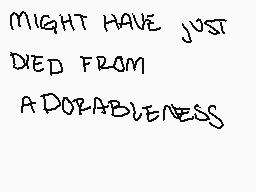 MIGHT HAVE JUST
DIED FROM
ADORABLENESS